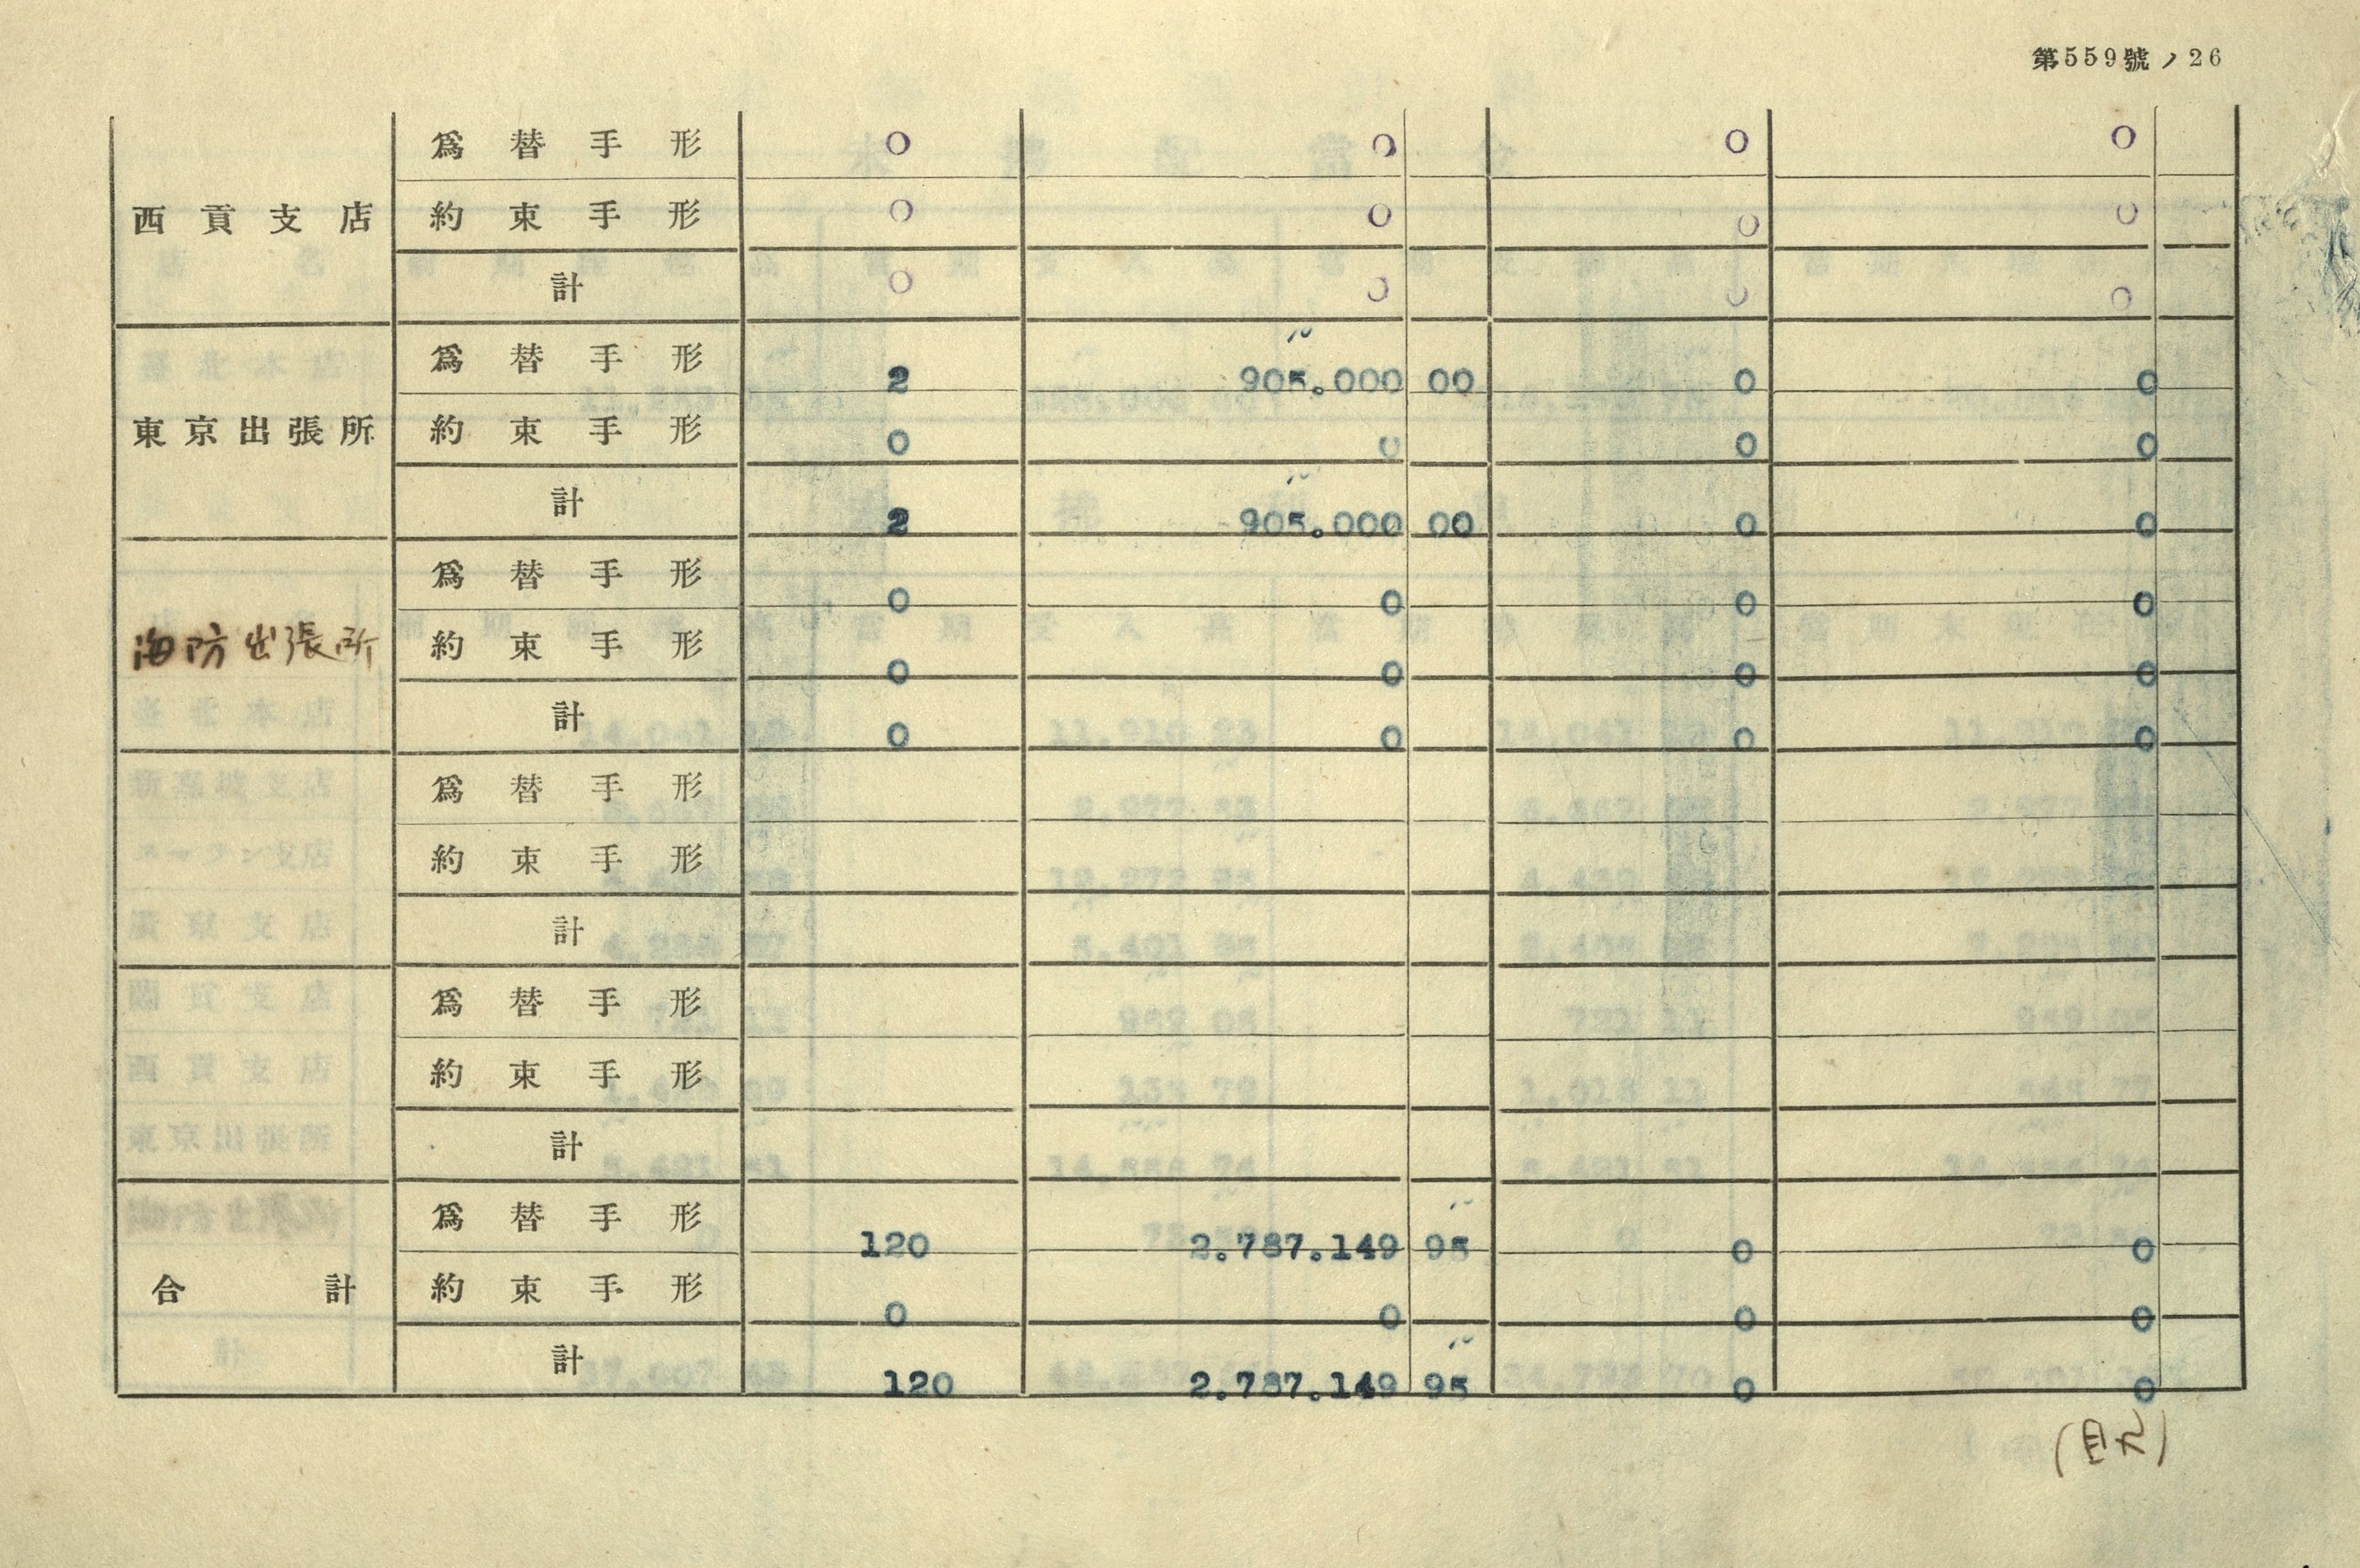 第559號ノ26
爲替手形 0 0 0 0
西貢支店 約束手形 0 0 0 0
計 0 0 0 0
爲替手形 2 905.000 00 0 0
東京出張所 約束手形 0 0 0 0
計 2 905.000 00 0 0
爲替手形 0 0 0 0
海防出張所 約束手形 0 0 0 0
計 0 0 0 0
爲替手形
約束手形
計
爲替手形
約束手形
計
爲替手形 120 2.787.149 95 0 0
合計 約束手形 0 0 0 0
計 120 2.787.149 95 0 0